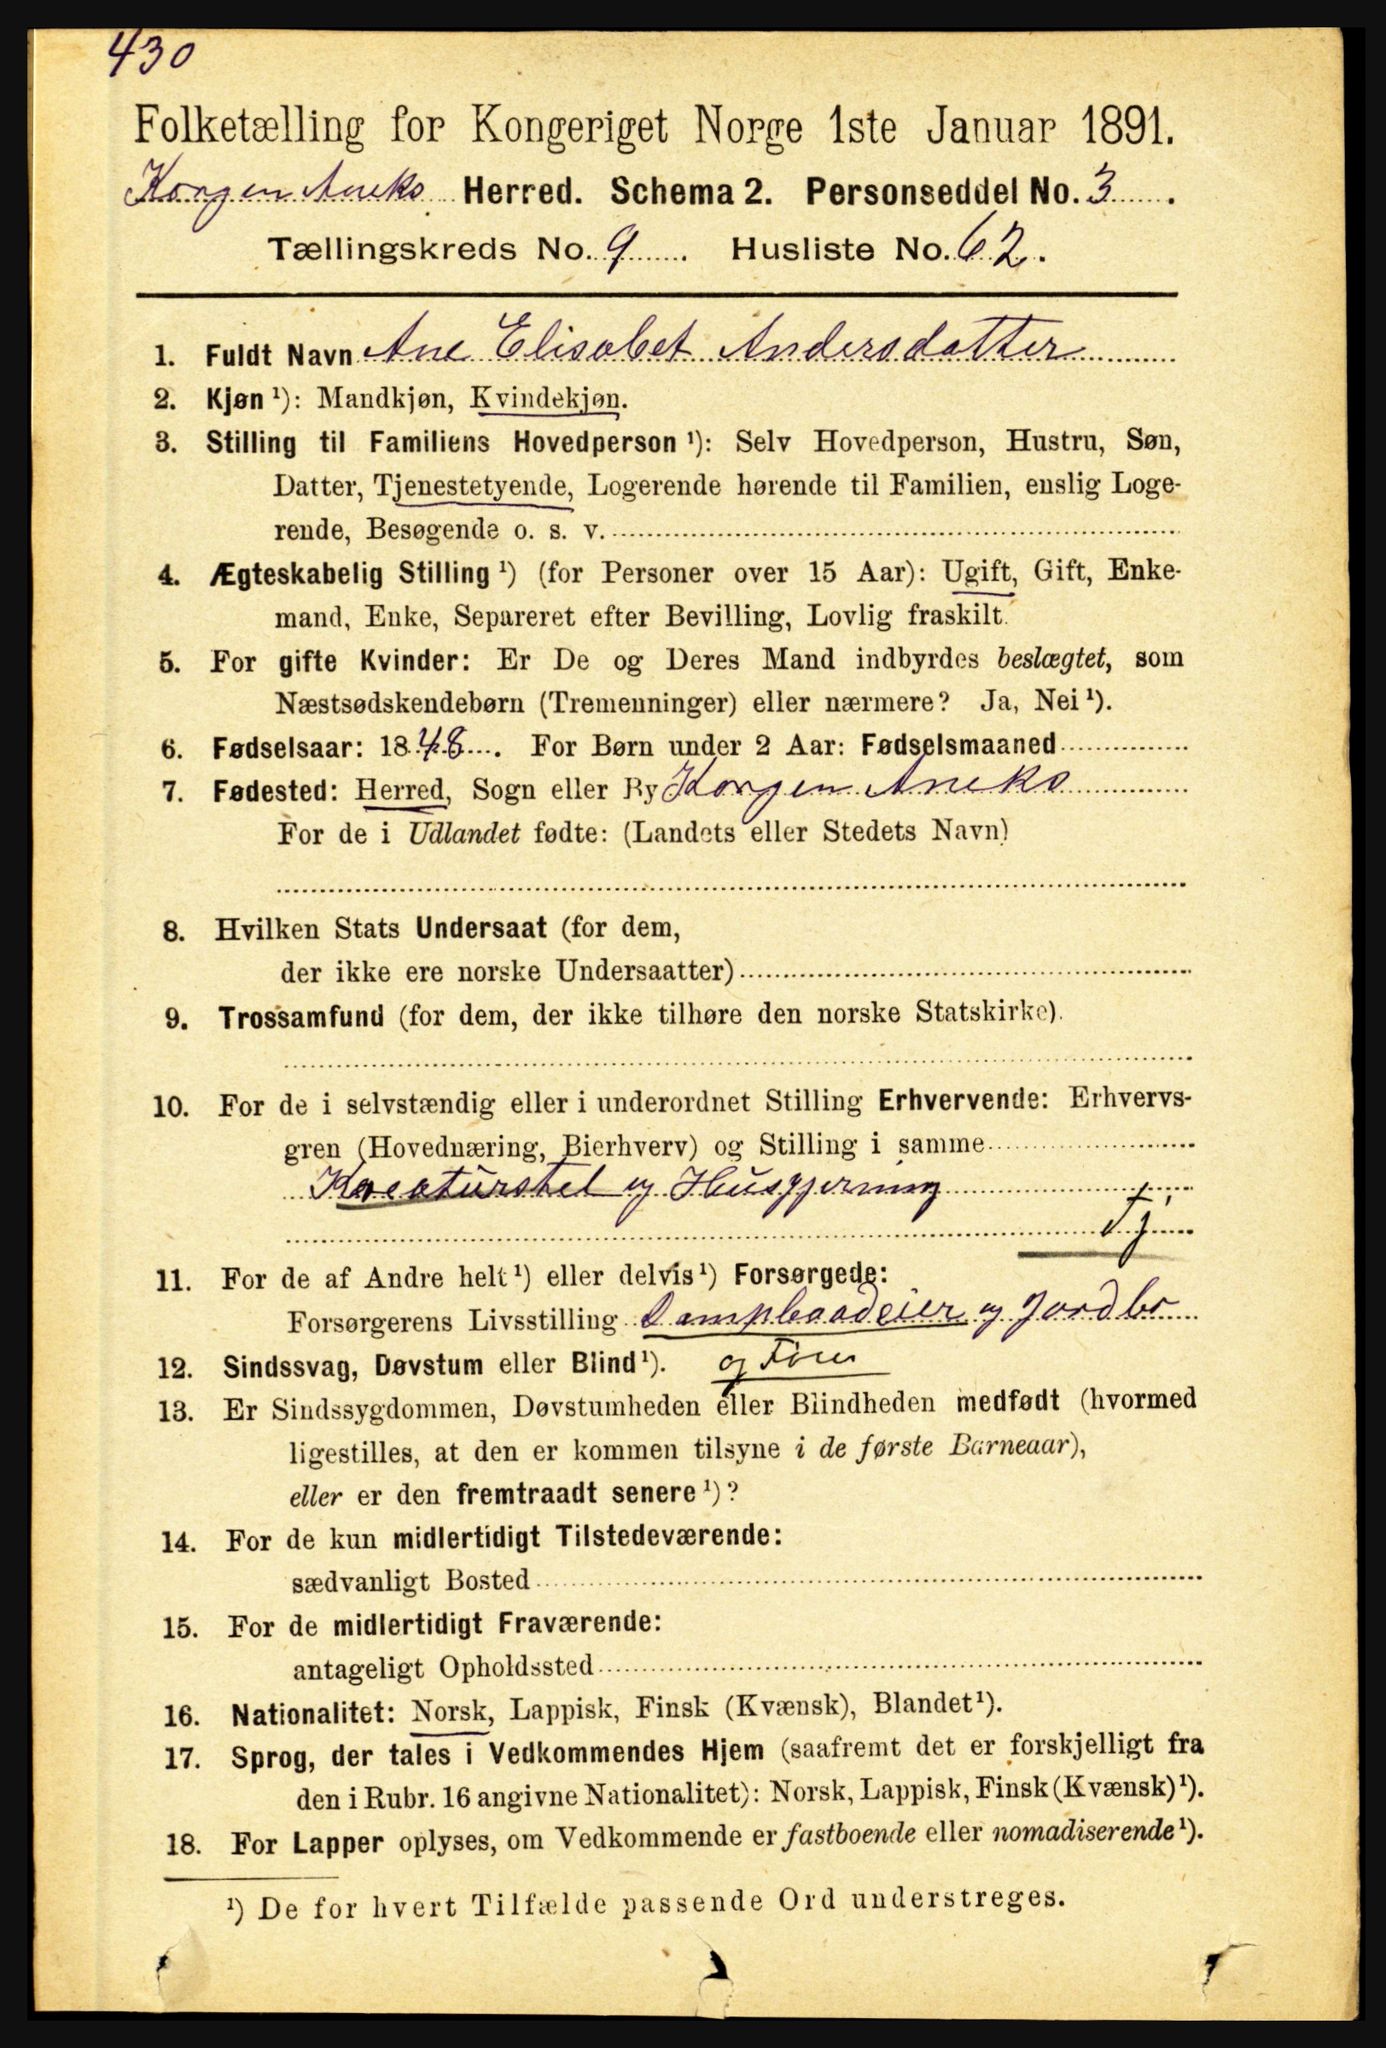 430
Folketælling for Kongeriget Norge 1ste Januar 1891.
Korgen Aneks Herred. Schema 2. Personseddel No. 3.
Tællingskreds No. 9. Husliste No. 62.
1. Fuldt Navn Ane Elisabet Andersdatter
2. Kjøn ¹): Mandkjøn, Kvindekjøn.
3. Stilling til Familiens Hovedperson ¹): Selv Hovedperson, Hustru, Søn,
Datter, Tjenestetyende, Logerende hørende til Familien, enslig Loge-
rende, Besøgende o. s. v.
4. Ægteskabelig Stilling ¹) (for Personer over 15 Aar): Ugift, Gift, Enke-
mand, Enke, Separeret efter Bevilling, Lovlig fraskilt.
5. For gifte Kvinder: Er De og Deres Mand indbyrdes beslægtet, som
Næstsødskendebørn (Tremenninger) eller nærmere? Ja, Nei ¹).
6. Fødselsaar: 1848. For Børn under 2 Aar: Fødselsmaaned
7. Fødested: Herred, Sogn eller By Korgen Aneks
For de i Udlandet fødte: (Landets eller Stedets Navn)
8. Hvilken Stats Undersaat (for dem,
der ikke ere norske Undersaatter)
9. Trossamfund (for dem, der ikke tilhøre den norske Statskirke).
10. For de i selvstændig eller i underordnet Stilling Erhvervende: Erhvervs-
gren (Hovednæring, Bierhverv) og Stilling i samme
Kreaturstel og Husgjerning
tj
11. For de af Andre helt ¹) eller delvis ¹) Forsørgede:
Forsørgerens Livsstilling Dampbaadeier og Jordbr
12. Sindssvag, Døvstum eller Blind ¹). og Fører
13. Er Sindssygdommen, Døvstumheden eller Blindheden medfødt (hvormed
ligestilles, at den er kommen tilsyne i de første Barneaar),
eller er den fremtraadt senere ¹)?
14. For de kun midlertidigt Tilstedeværende:
sædvanligt Bosted
15. For de midlertidigt Fraværende:
antageligt Opholdssted
16. Nationalitet: Norsk, Lappisk, Finsk (Kvænsk), Blandet ¹).
17. Sprog, der tales i Vedkommendes Hjem (saafremt det er forskjelligt fra
den i Rubr. 16 angivne Nationalitet): Norsk, Lappisk, Finsk (Kvænsk) ¹).
18. For Lapper oplyses, om Vedkommende er fastboende eller nomadiserende ¹).
¹) De for hvert Tilfælde passende Ord understreges.